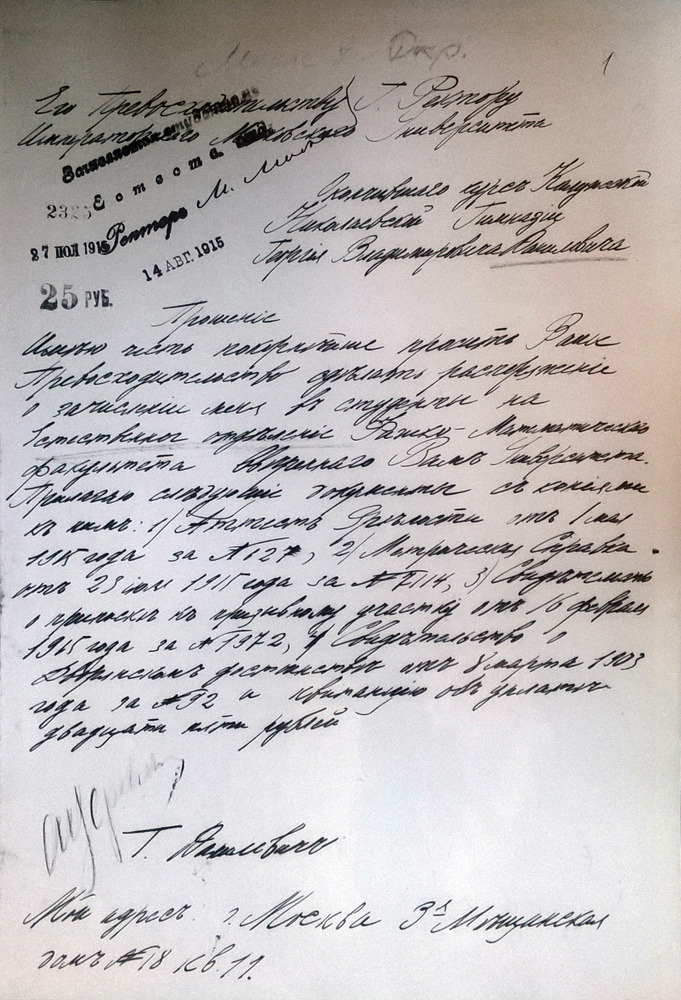 1
Его Превосходительству Г. Ректору
Императорского Московского Университета
Естеств.
Ректоръ М.
27 ІЮЛ 1915
14 АВГ. 1915
25 РУБ.
Окончившаго курсъ Калужской
Николаевской Гимназіи
Георгія Владимировича Данилевича
Прошеніе
Имѣю честь покорнѣйше просить Ваше
Превосходительство сдѣлать распоряженіе
о зачисленіи меня въ студенты на
Естественное отдѣленіе Физико-Математическаго
факультета ввѣреннаго Вамъ Университета.
Прилагаю слѣдующіе документы съ копіями
къ нимъ: 1) Аттестатъ Зрѣлости отъ 1 мая
1915 года за № 127, 2) Метрическая Справка
отъ 23 іюля 1915 года за № 7114, 3) Свидѣтельство
о припискѣ къ призывному участку отъ 16 февраля
1915 года за № 1972, 4) Свидѣтельство о
Дворянскомъ достоинствѣ отъ 8 марта 1903
года за № 92 и квитанцію объ уплатѣ
двадцати пяти рублей
Г. Данилевичъ
Мой адресъ г. Москва 3я Мѣщанская
домъ № 18 кв. 11.